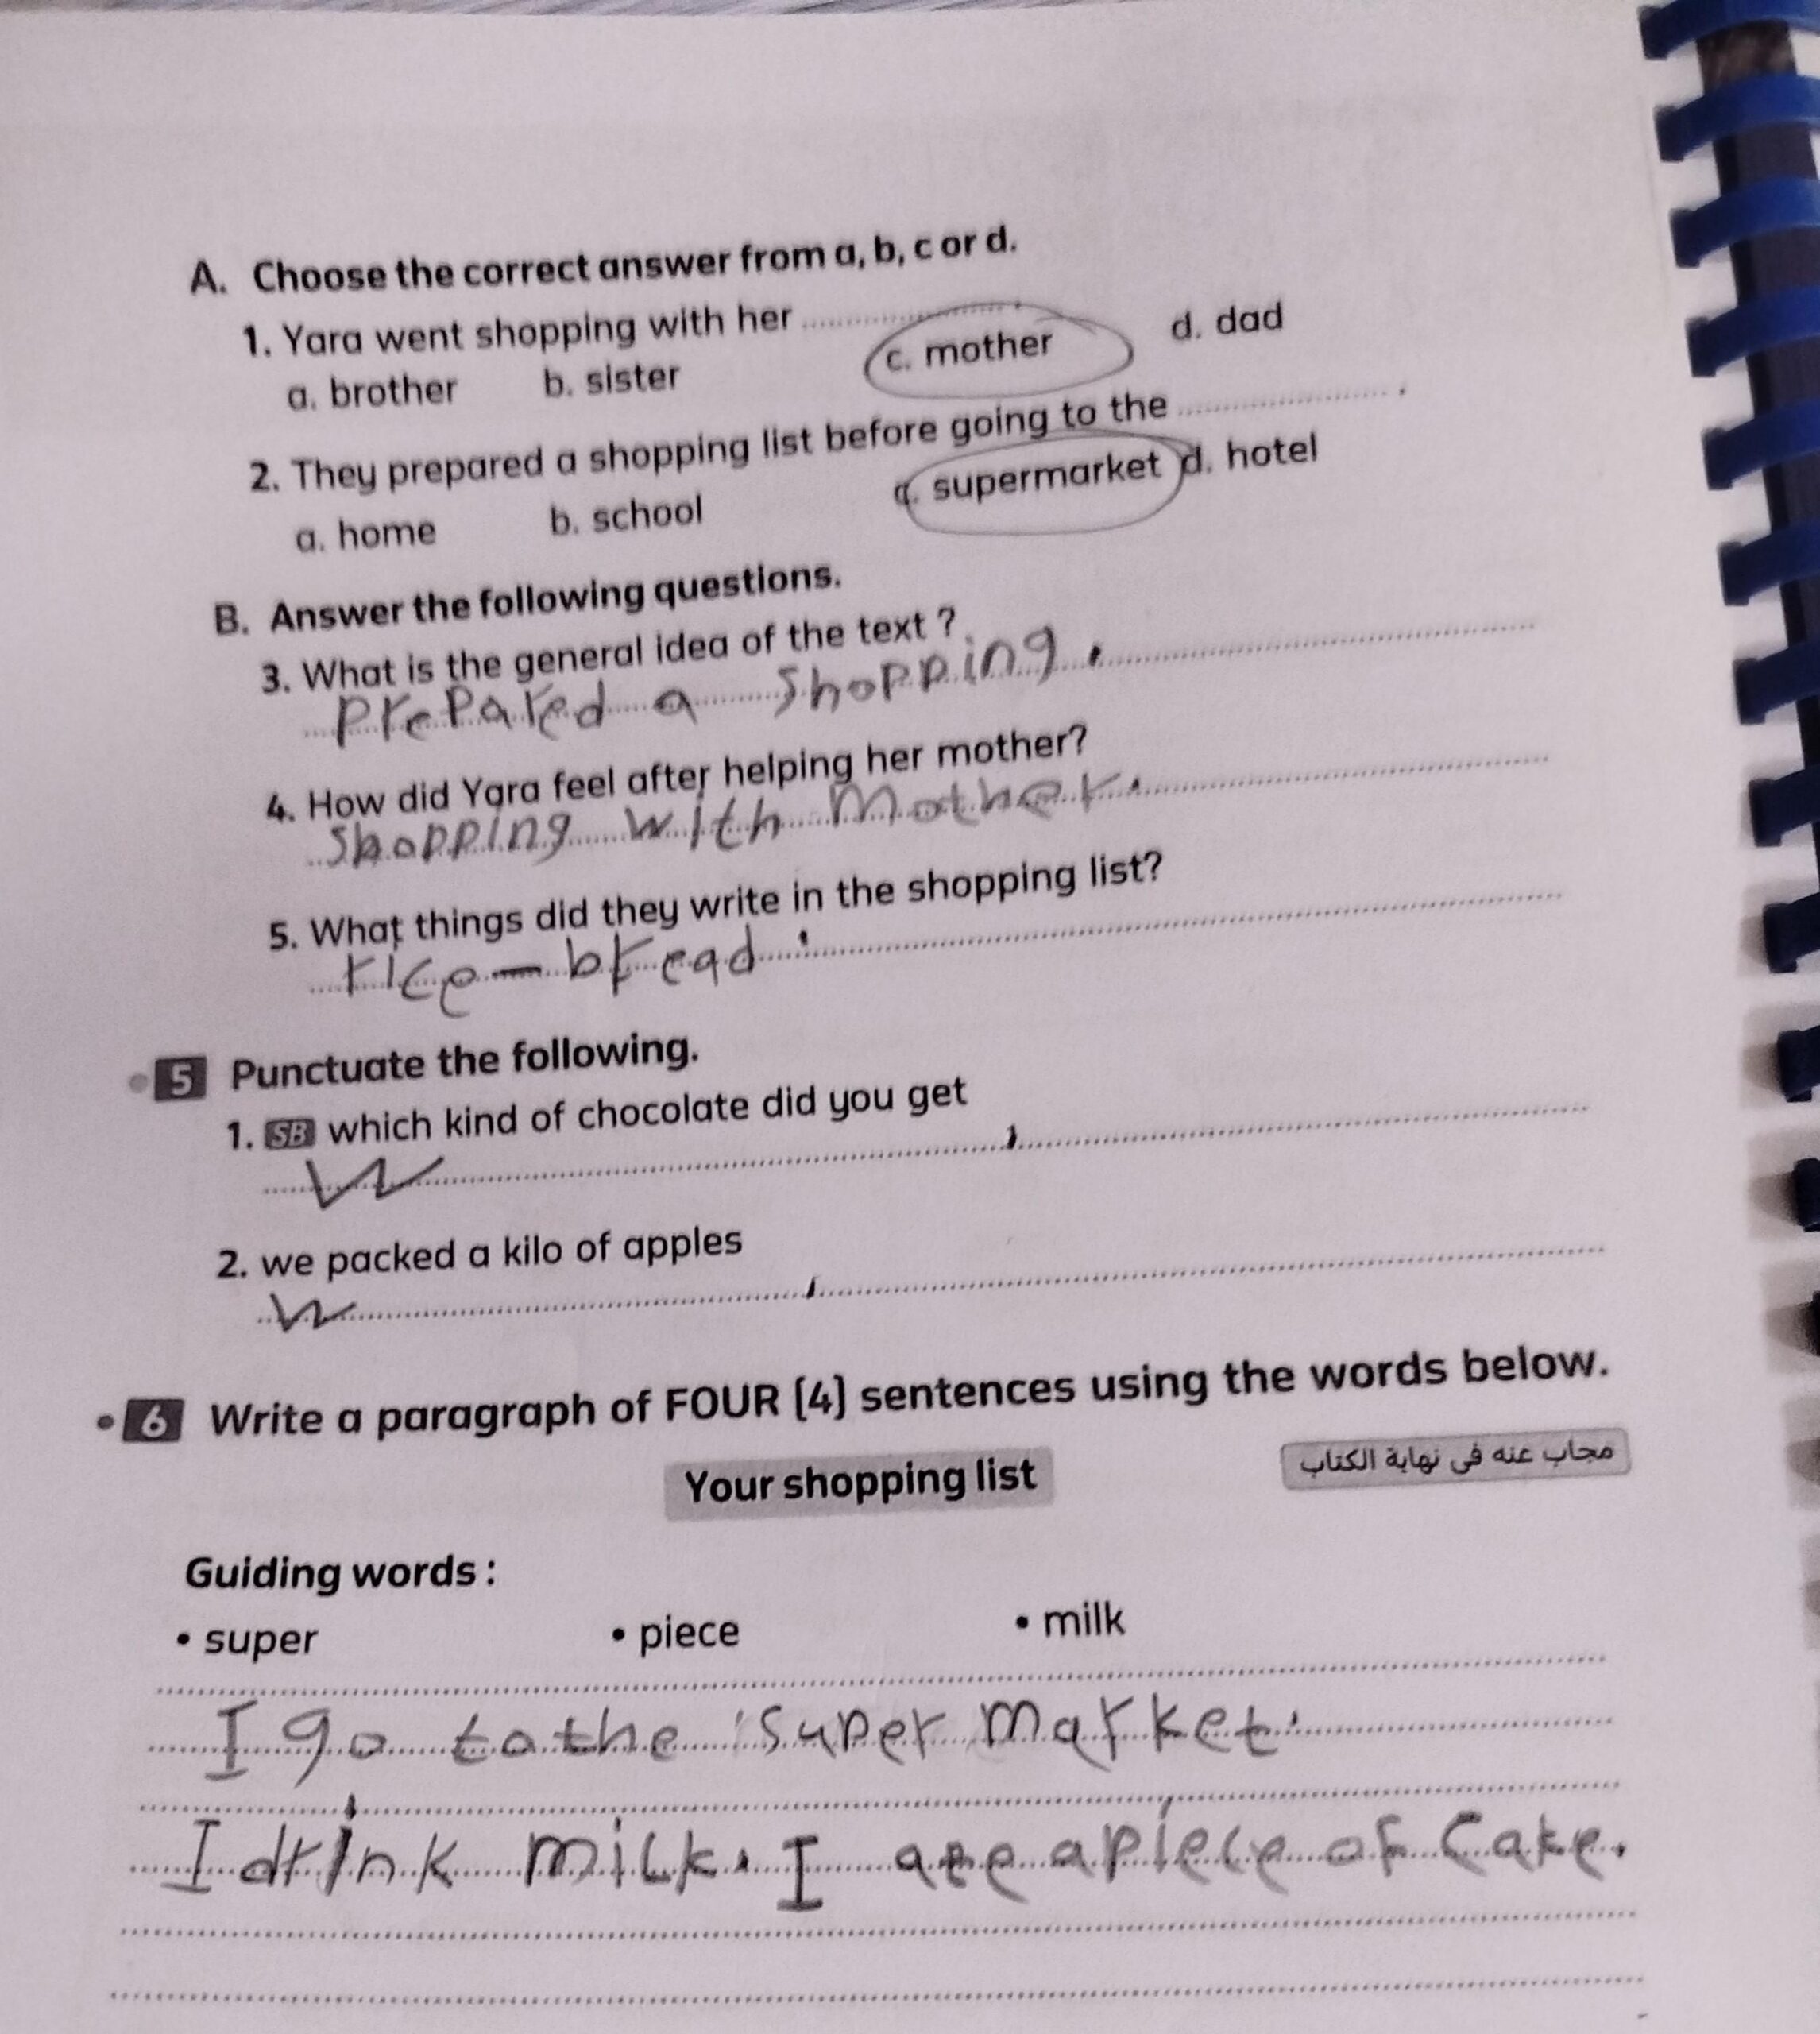 A. Choose the correct answer from a, b, c or d.
1. Yara went shopping with her ....................
a. brother b. sister c. mother d. dad
2. They prepared a shopping list before going to the .................... .
a. home b. school c. supermarket d. hotel
B. Answer the following questions.
3. What is the general idea of the text ?
prepared a shopping .
4. How did Yara feel after helping her mother?
Shopping with mother.
5. What things did they write in the shopping list?
rice – bread .
5 Punctuate the following.
1. SB which kind of chocolate did you get
W .
2. we packed a kilo of apples
W .
6 Write a paragraph of FOUR (4) sentences using the words below.
Your shopping list
مجاب عنه فى نهاية الكتاب
Guiding words :
• super • piece • milk
I go to the super market.
I drink milk. I ate a piece of Cake.